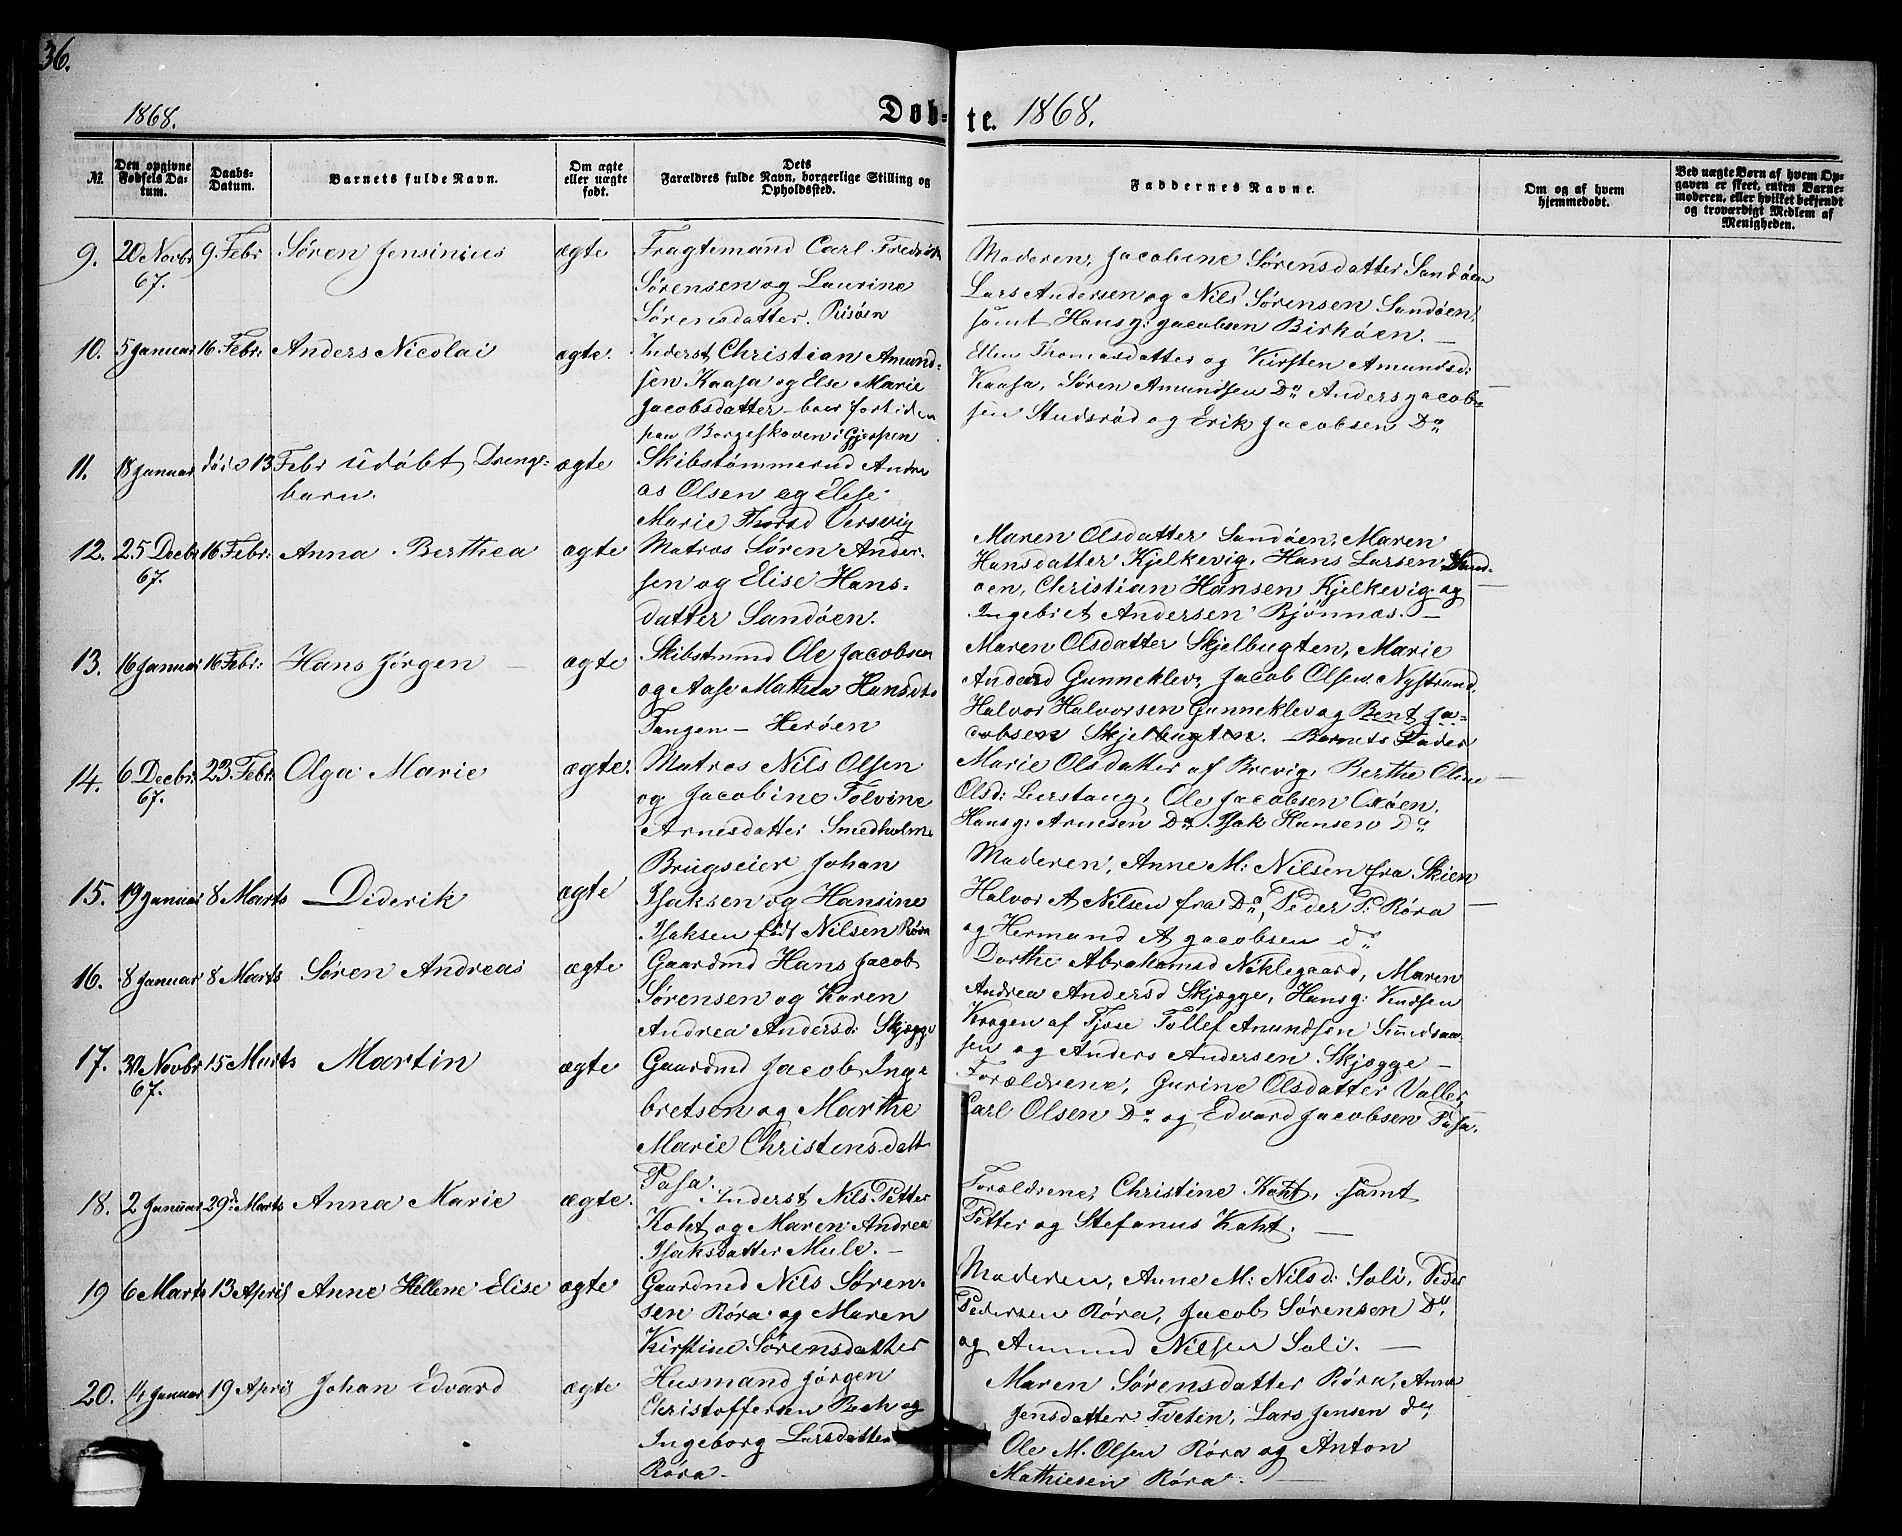 36.
1868. Døb- te. 1868.
№
Den opgivne Fødsels Datum.
Daabs-Datum.
Barnets fulde Navn.
Om ægte eller uægte født.
Dets Forældres fulde Navn, borgerlige Stilling og Opholdssted.
Faddernes Navne.
Om og af hvem hjemmedøbt.
Ved uægte Børn af hvem Opgaven er skeet, enten Barnemoderen, eller hvilket bekjendt og troværdigt Medlem af Menigheden.
9. 20 Novbr 67. 9 Febr Søren Jensinius ægte
Fragtemand Carl Fredrik
Sørensen og Laurine
Sørensdatter. Risøen
Moderen, Jacobine Sørensdatter Sandøen
Lars Andersen og Nils Sørensen Sandøen,
samt Hans J: Jacobsen Birkøen. —
10. 5 Januar 16 Febr: Anders Nicolai ægte.
Inderst Christian Amund-
sen Kaasa og Else Marie
Jacobsdatter – boer fortiden
paa Borgeskoven i Gjerpen
Ellen Thomasdatter og Kirsten Amundsd:
Kaasa, Søren Amundsen Do Anders Jacob-
sen Studsrød og Erik Jacobsen Do
11. 18 Januar død 13 Febr udøbt Drenge-
barn.
ægte
Skibstømmermd Andre
as Olsen og Elise
Marie Thorsd Versvig
12. 25 Decbr 67. 16 Febr: Anna Berthea ægte
Matros Søren Ander-
sen og Elise Hans-
datter Sandøen.
Maren Olsdatter Sandøen, Maren
Hansdatter Kjelkevig, Hans Larsen Sand-
øen, Christian Hansen Kjelkevig og
Ingebret Andersen Bjønnæs. —
13. 16 Januar 16 Febr: Hans Jørgen — ægte
Skibstmmd Ole Jacobsen
og Aase Mathea Hansdtr
Tangen – Herøen
Maren Olsdatter Skjelbugten, Marie
Andersd Gunneklev, Jacob Olsen Nystrand
Halvor Halvorsen Gunneklev og Bent Ja-
cobsen Skjelbugten. – Barnets Fader
14. 6 Decbr 67. 23 Febr: Olga Marie ægte.
Matros Nils Olsen
og Jacobine Tolvine
Arnesdatter Smedholm
Marie Olsdatter af Brevig, Berthe Oline
Olsd: Lerstang, Ole Jacobsen Oxøen,
Hans J: Arnesen Do Isak Hansen Do
15. 19 Januar 8 Marts Diderik ægte
Brugseier Johan
Isaksen og Hansine
Isaksen født Nilsen Røra
Moderen, Anne M: Nilsen fra Skien
Halvor A Nilsen fra Do, Peder P: Røra
og Hermand A Jacobsen do
16. 8 Januar 8 Marts Søren Andreas ægte
Gaardmd Hans Jacob
Sørensen og Karen
Andrea Andersd: Skjøgge
Dorthe Abrahamsd Niklegaard, Maren
Andrea Andersd Skjøgge, Hans J: Knudsen
Krogen af Fjose Tollef Amundsen
sen og Anders Andersen Skjøgge —
17. 30 Novbr 67. 15 Marts Martin ægte
Gaardmd Jacob Inge
bretsen og Marthe
Marie Christensdatt
Pasa.
Forældrene, Gurine Olsdatter Valler,
Carl Olsen Do og Edvard Jacobsen Pasa.
18. 2 Januar 29de Marts Anna Marie ægte.
Inderst Nils Petter
Koht og Maren Andrea
Isaksdatter Mule. —
Forældrene, Christine Koht, samt
Petter og Stefanus Koht. —
19 6 Marts 13 April Anne Hellene Elise ægte
Gaardmd Nils Søren-
sen Røra og Maren
Kirstine Sørensdatter
Moderen, Anne M: Nilsd: Soli, Peder
Pedersen Røra, Jacob Sørensen Do,
og Amund Nilsen Soli. —
20. 14 Januar 19 April Johan Edvard ægte
Husmand Jørgen
Christoffersen Bech og
Ingeborg Larsdatter
Røra.
Maren Sørensdatter Røra, Anne
Jensdatter Tveten, Lars Jensen do,
Ole M. Olsen Røra og Anton
Mathiesen Røra. —